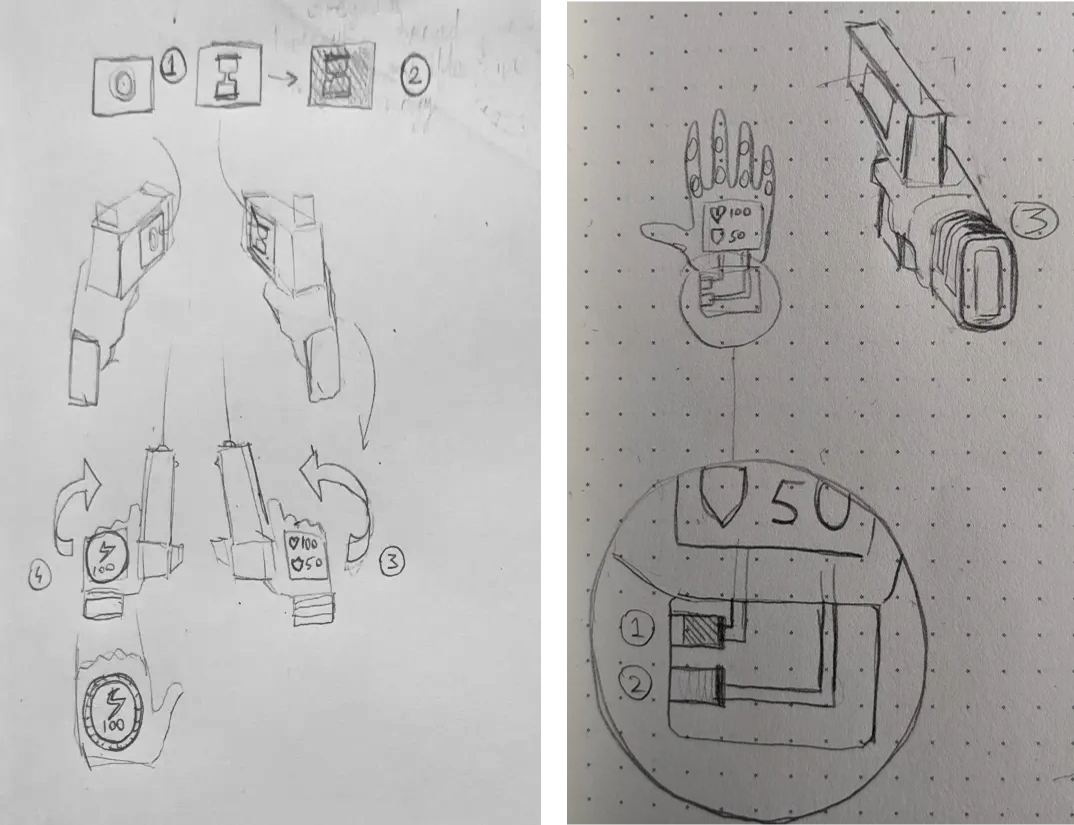 1
2
100
50
4
100
3
100
100
50
3
50
1
2